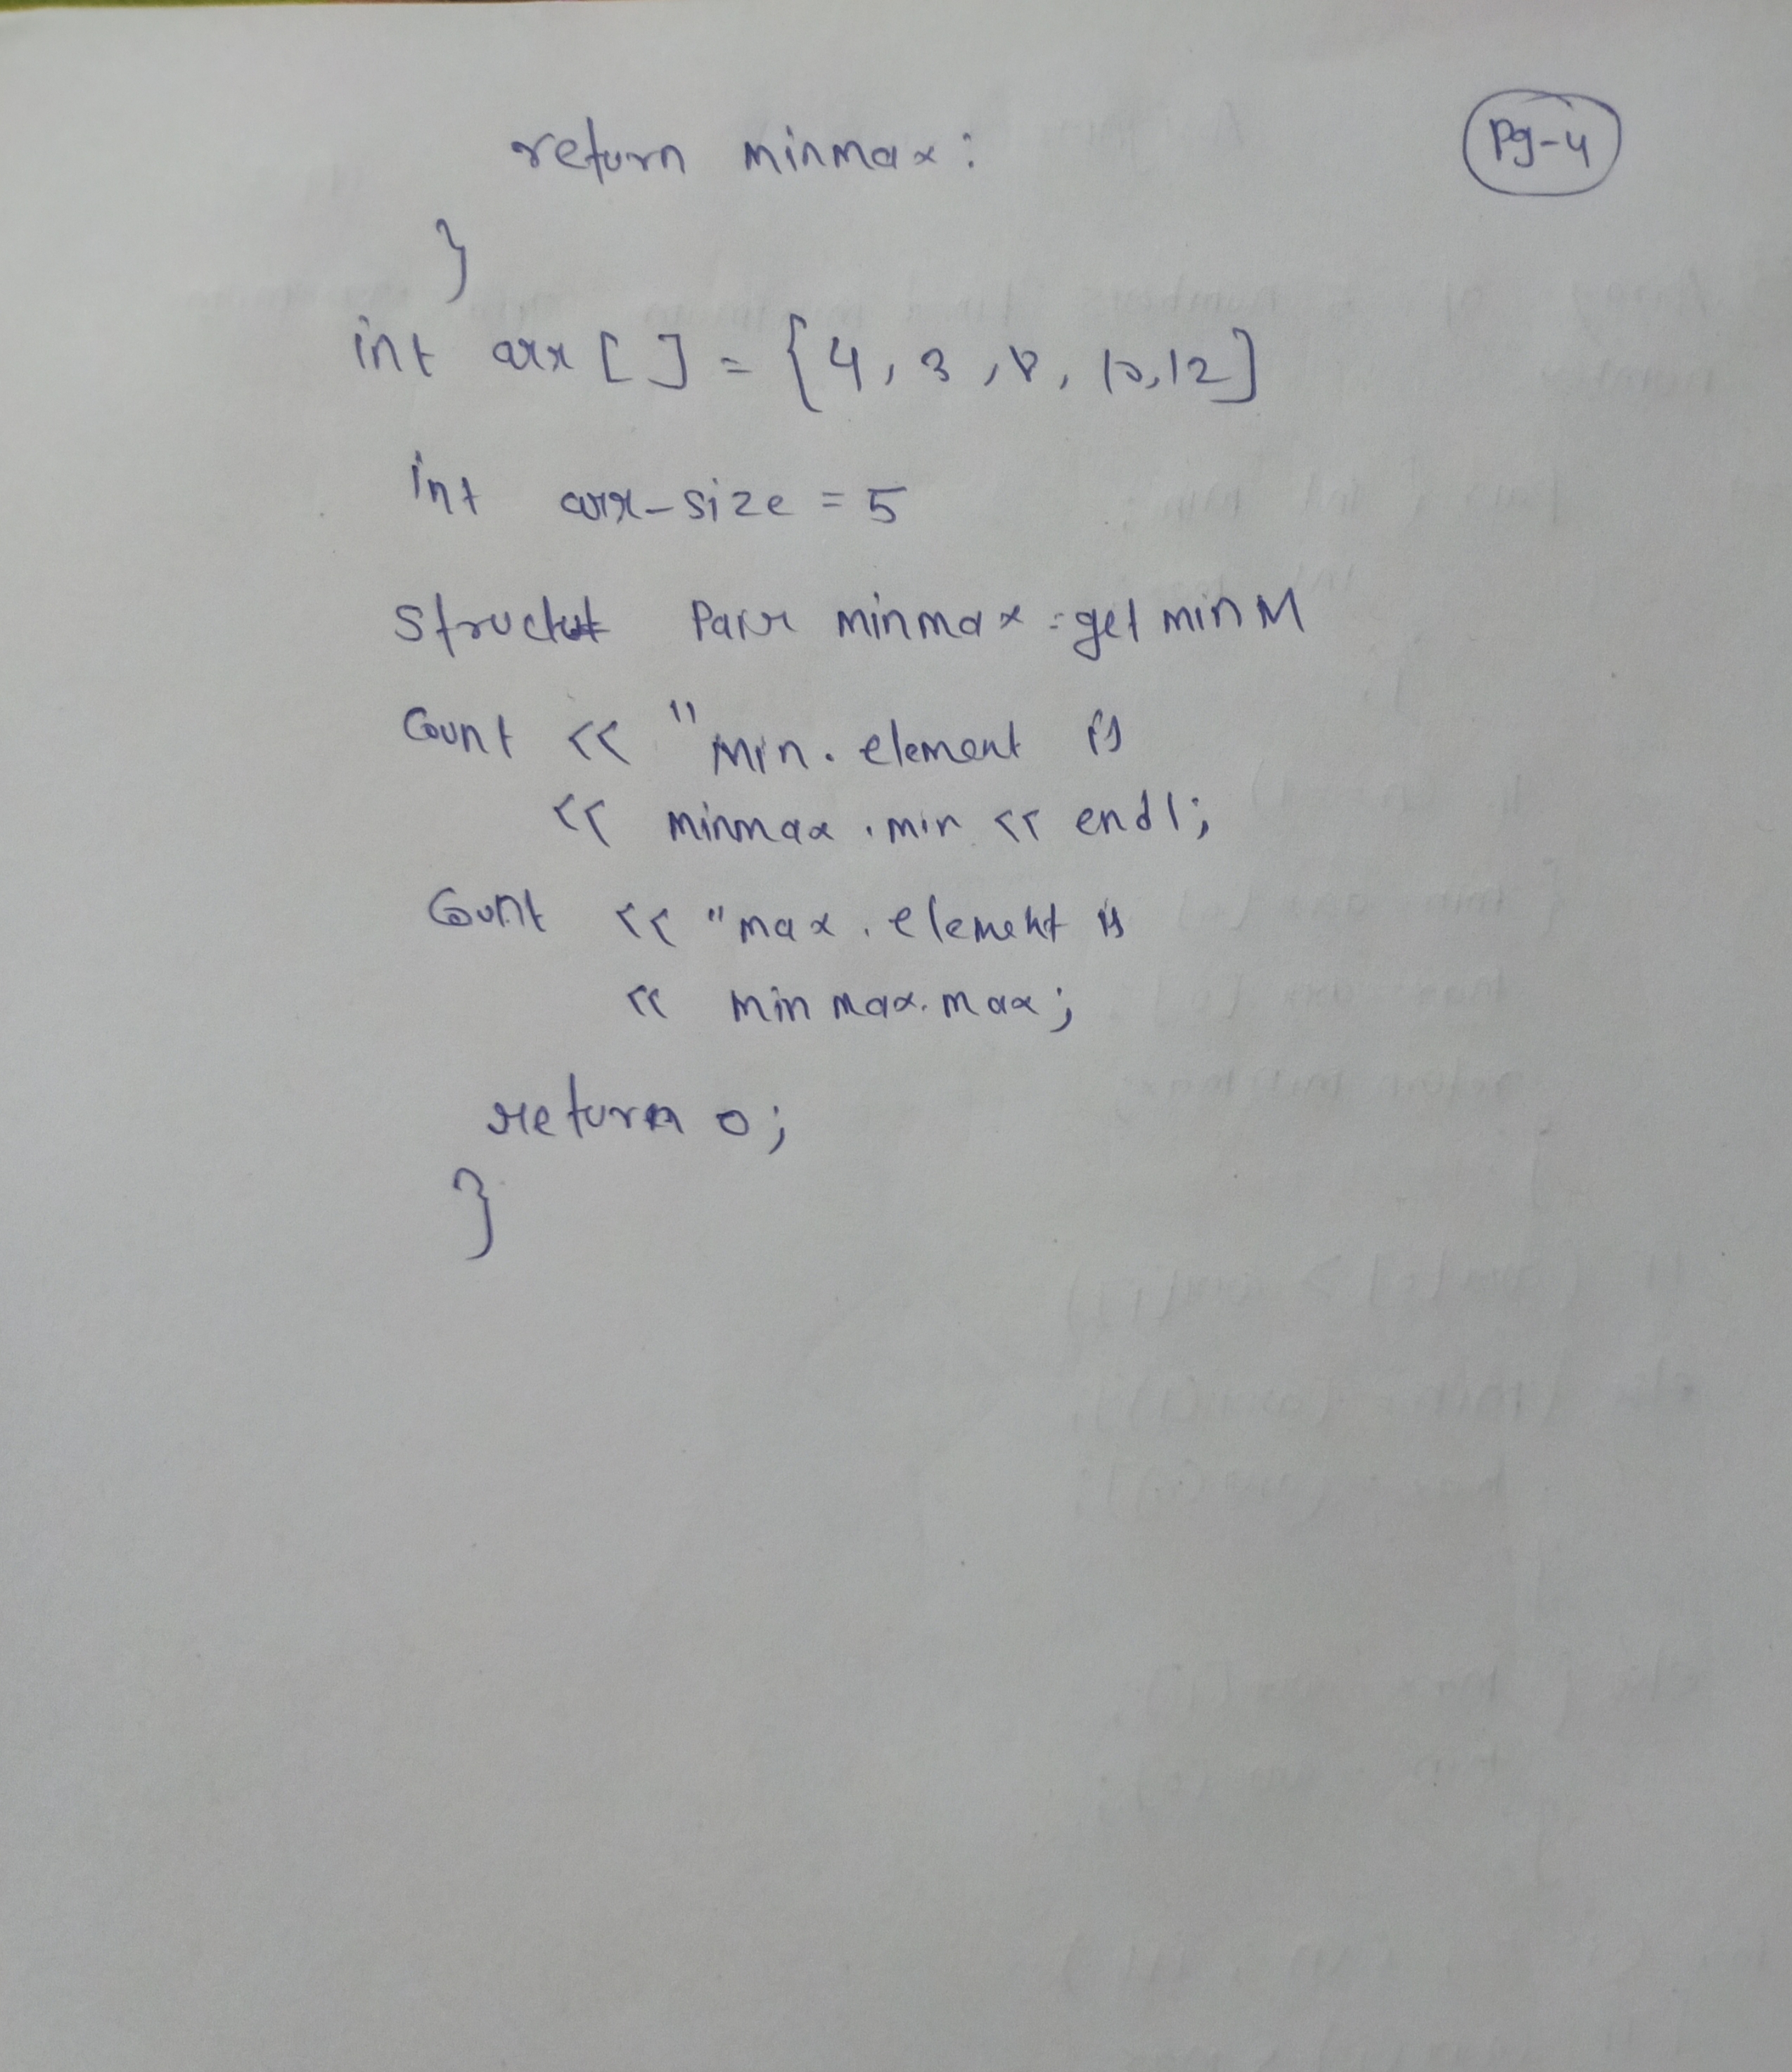 Pg-4
return minmax:
}
int arr [ ] = {4, 3, 8, 10, 12]
int arr-size = 5
Struct Pair minmax = get minM
Count << "Min. element is
<< minmax . min << endl;
Count << "max. element is
<< min max. max;
return 0;
}